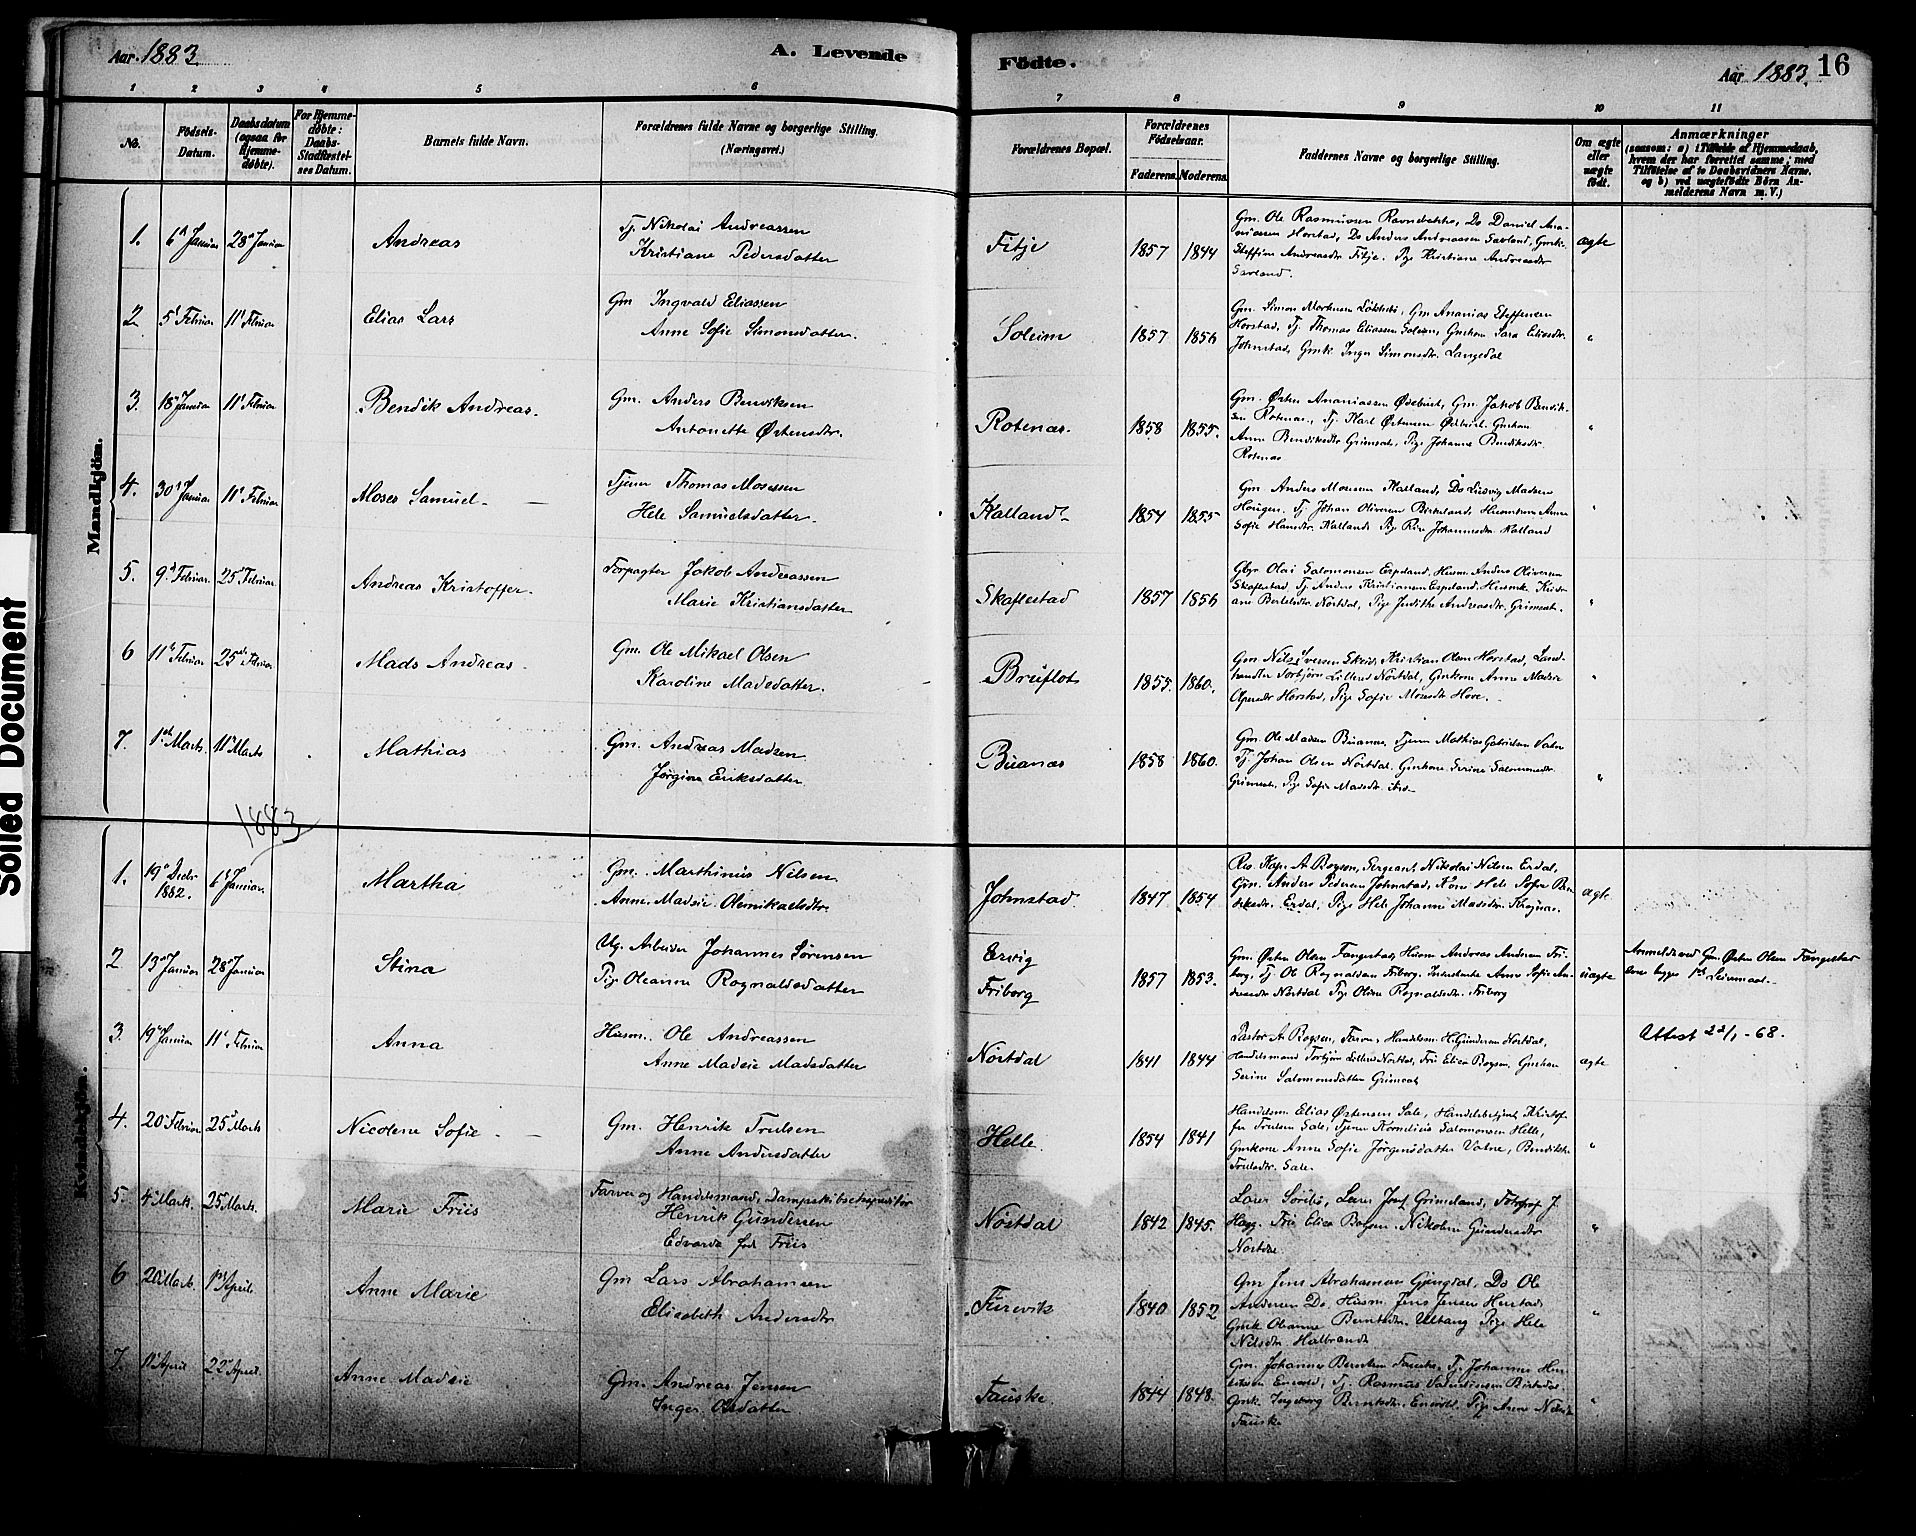 Aar 1883.
A. Levende Födte.
Aar 1883. 16
1 2 3 4 5 6 7 8 9 10 11
No.
Födsels-Datum.
Daabsdatum (ogsaa for Hjemmedøbte).
For Hjemmedøbte: Daabs-Stadfæstelses Datum.
Barnets fulde Navn.
Forældrenes fulde Navne og borgerlige Stilling. (Næringsvei.)
Forældrenes Bopæl.
Forældrenes Födselsaar.
Faderens. Moderens.
Faddernes Navne og borgerlige Stilling.
Om ægte eller uægte födt.
Anmærkninger
(saasom: a) i Tilfælde af Hjemmedaab, hvem der har forrettet samme; med Tilføielse af to Daabsvidners Navne, og b) ved uægtefødte Börn Anmelderens Navn m. V.)
Solled Document
Mandkjön.
1. 6 Januar 28 Januar Andreas
Tj. Nikolai Andreassen
Kristiane Pedersdatter
Fitje 1857 1844
Gm. Ole Rasmussen Do Daniel
Horstad, Do Anders Andreassen Savland, Gmk.
Steffine Andreasdtr Fitje. Pige Kristiane Andreasdtr
Savland.
ægte
2. 5 Februar 11 Februar Elias Lars
Gm Ingvald Eliassen
Anne Sofie Simonsdatter.
Soleim 1857 1856
Gm. Simon Mortensen Gm Ananias Steffensen
Horstad, Tj. Thomas Eliassen Soleim, Gmkone Sara Eliasdtr.
Johnstad, Gmk Inger Simonsdtr. Langedal
"
3. 18 Januar 11 Februar Bendik Andreas.
Gm. Anders Bendiksen
Antonette Østensdtr.
Rotenas. 1858 1855.
Gm. Østen Ananiassen Gm. Jakob Bendiksen
Rotenas, Tj. Karl Østensen Gmkone
Anne Bendiksdtr Grimset, Pige Johanne Bendiksdtr.
Rotenas
"
4. 30 Januar 11 Februar Moses Samuel.
Tjener Thomas Mosessen
Hele Samuelsdatter.
Kalland 1854 1855
Gm Anders Monsen Kalland, Do Ludvig Madsen
Tj. Johan Oliversen Birkeland, Anne
Sofie Hansdtr. Kalland Pige Johannesdtr Kalland
"
5. 9 Februar. 25 Februar. Andreas Kristoffer.
Forpagter Jakob Andreassen
Marie Kristiansdatter
Skaflestad 1857 1856
Gbr. Olai Salomonsen Espeland, Husm. Anders Oliversen
Skaflestad, Tj. Anders Kristiansen Espeland, Husmk. Kristiane
Bertelsdtr. Nostdal, Pige Judithe Andreasdtr. Grimset.
"
6 11 Februar 25 Februar Mads Andreas.
Gm. Ole Mikael Olsen
Karoline Madsdatter.
Bruflot 1855. 1860.
Gm Nils Iversen Skeid, Kristian Olsen Horstad, Landhandler
Torbjörn Lillerud Nostdal, Gmkone Anne Madsie
Horstad, Pige Sofie Mosesdtr Hove.
"
7. 1 Marts. 11 Marts Mathias
Gm. Andreas Madsen
Jørgine Eriksdatter.
Buanes 1858 1860
Gm. Ole Madsen Buanes, Tjener Mathias Gabrielsen
Tj. Johan Olsen Nostdal. Gmkone Serine Salomonsdtr.
Grimset, Pige Sofie Madsdtr.
"
1883
Kvindekjön.
1. 19 Decbr 1882. 6 Januar. Martha
Gm. Marthinus Nilsen
Anne Madsie Olemikaelsdtr.
Johnstad 1847 1854
Res. Kap. A Bogsen, Sergeant Nikolai Nilsen Erdal,
Gm. Anders Pedersen Johnstad, Hele Sofie
Erdal, Pige Hele Johanne Madsdtr.
ægte
2 13 Januar 28 Januar Stina
Ug. Arbeider Johannes Sørensen
Pige Oleanne Rognaldsdatter
Ervig
Friborg
1857 1853.
Gm. Østen Olsen Fangestad, Husm Andreas Andersen Friborg,
Tj. Ole Rognaldsen Friborg, Anne Sofie
Nostdal Pige Oline Rognaldsdtr. Friborg
uægte
Anmeldt ved Gm. Østen Olsen Fangestad
begges 1st Leiermaal.
3 19 Januar 11 Februar Anna
Husm. Ole Andreassen
Anne Madsie Madsdatter
Nostdal 1841 1844
Pastor A Bogsen, Farver, Handelsm. H. Gundersen Nostdal,
Handelsmand Torbjörn Lillerud Nostdal, Fru Elica Bogsen, Gmkone
Serine Salomonsdatter Grimset
ægte
Attest 22/1-68.
4. 20 Februar 25 Marts Nicoline Sofie
Gm. Henrik Trulsen
Anne Andersdatter
Helle. 1854 1841
Handelsm. Elias Østensen Sale, Handelsbetjent Kristoffer
Trulsen Sale, Tjener Kornelius Salomonsen Helle,
Gmkone Anne Sofie Jørgensdatter Bendikte
Trulsdtr. Sale.
"
5. 4 Marts. 25 Marts. Marie Friis
Farver og Handelsmand, Dampskibsexpeditör
Henrik Gundersen
Edvarda født Friis
Nostdal 1842 1845.
Lærer Lærer Grimeland, Fotograf J.
Hagg. Fru Elica Bogsen. Nikoline Gundersdtr
Nostdal
"
6 20 Marts. 1 April. Anne Marie
Gm Lars Abrahamsen
Elisabeth Andersdtr
Furevik 1840 1852
Gm Jens Abrahamsen Gjengdal, Do Ole
Andersen Do. Husm. Jens Jensen
Gmk Oleanne Berntsdtr. Ultang Pige Hele
Nilsdtr Halbrandt
"
7. 1 April 22 April. Anne Madsie
Gm. Andreas Jensen
Inger Olsdatter
Fauske. 1844 1848.
Gm. Johannes Berntsen Fauske, Tj. Johannes
Tj. Rasmus
Gmk. Ingeborg Berntsdtr. Pige Anne
Fauske
"